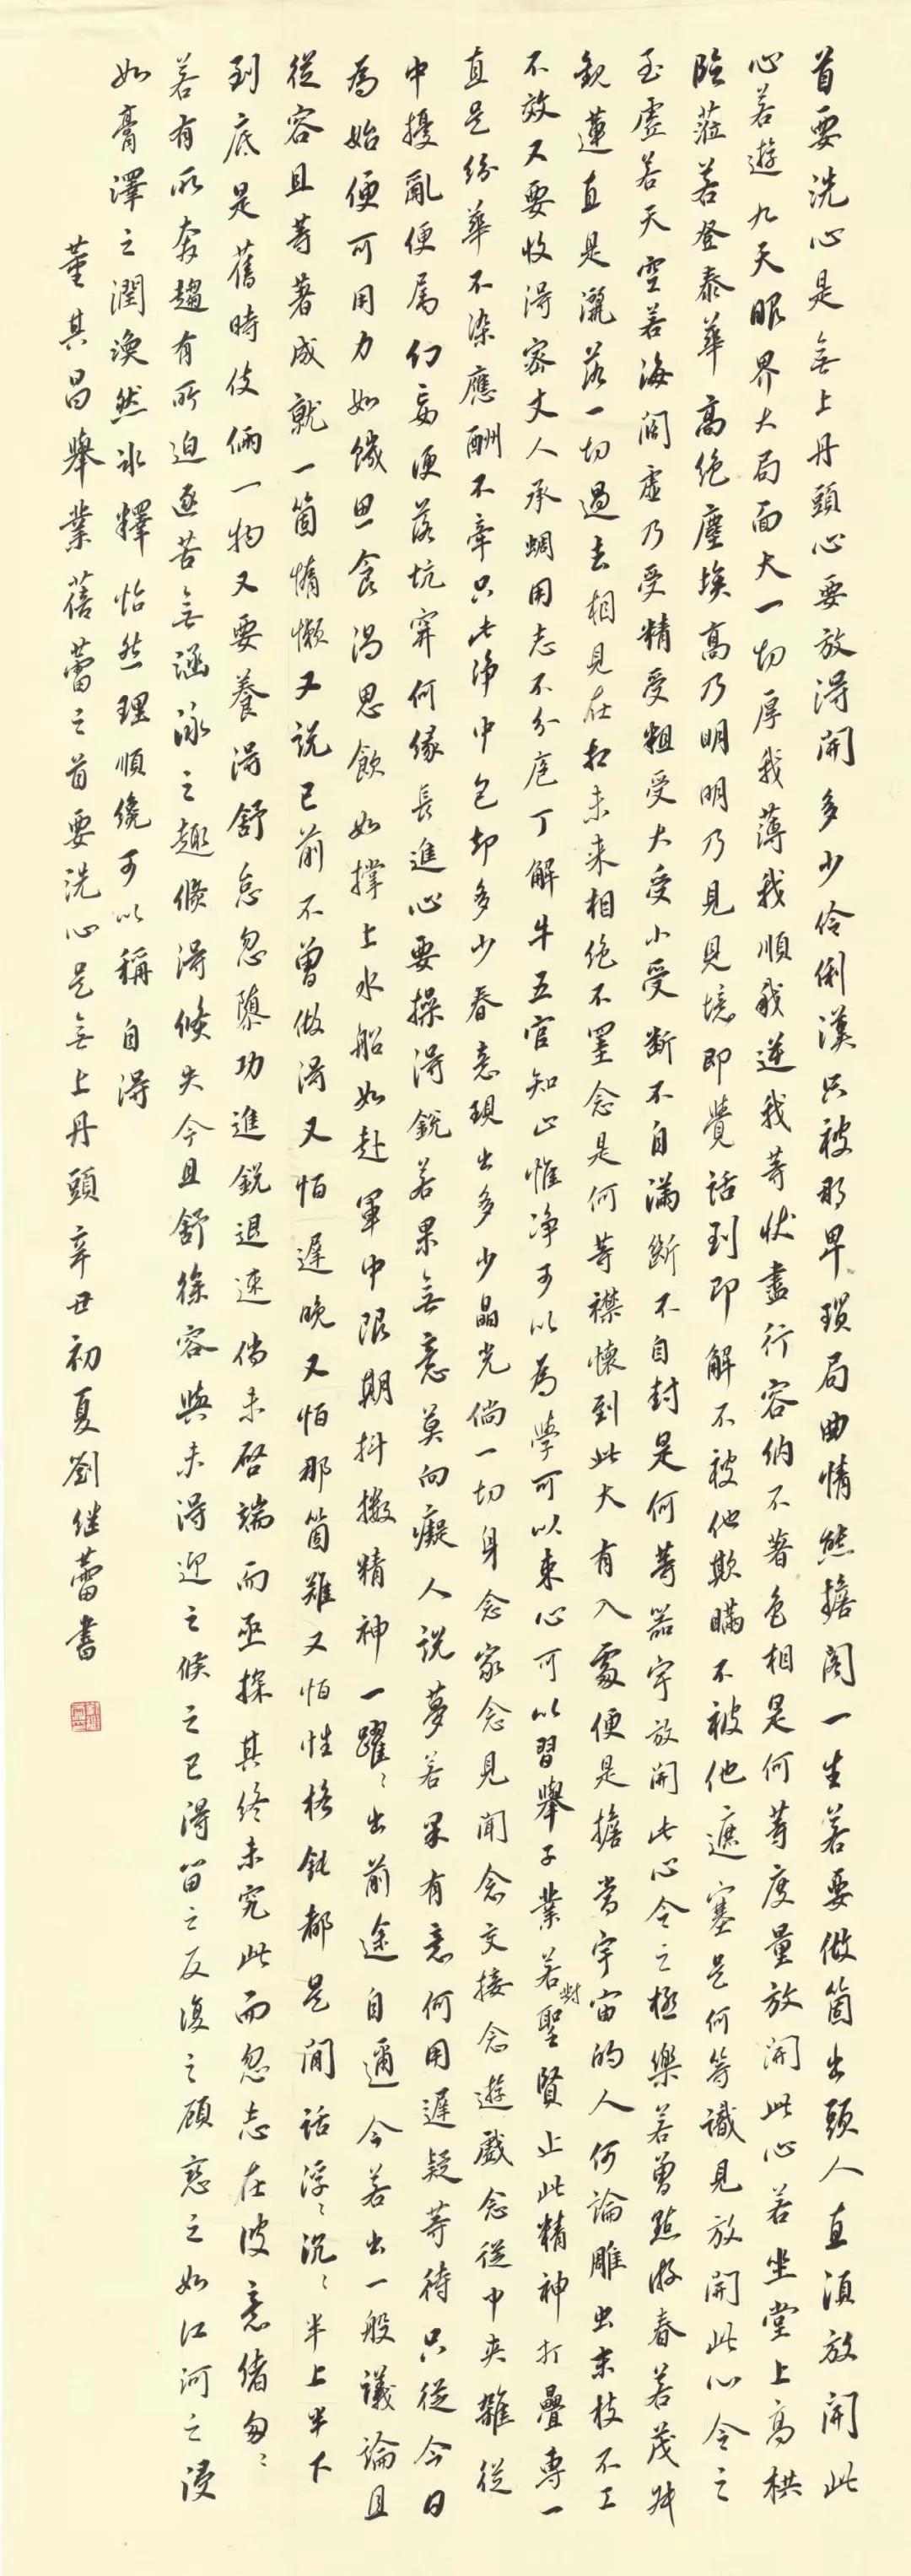 首要洗心是無上丹頭心要放得開多少伶俐漢只被那卑瑣局曲情態擔閣一生若要做箇出頭人直須放開此
心若遊九天眼界大局面大一切厚我薄我順我逆我等狀盡行容納不著色相是何等度量放開此心若坐堂上高棋
臨蒞若登泰華高絕塵埃高乃明明乃見見境即覺話到即解不被他欺瞞不被他遮塞是何等識見放開此心令之
至虛若天空若海闊虛乃受精受粗受大受小受斷不自滿斷不自封是何等器宇放開此心令之極樂若曾點游春若茂叔
觀蓮直是灑落一切過去相見在相未來相絕不罣念是何等襟懷到此大有入處便是擔當宇宙的人何論雕虫末枝不工
不效又要收得密丈人承蜩用志不分庖丁解牛五官知止惟淨可以為學可以束心可以習舉子業若對聖賢止此精神打疊專一
直是紛華不染應酬不牽只此淨中包却多少春意現出多少晶光倘一切身念家念見聞念交接念遊戲念從中夾雜從
中擾亂便屬幻妄便落坑穽何緣長進心要操得銳若果無意莫向癡人說夢若果有意何用遲疑等待只從今日
為始便可用力如饑思食渴思飲如撑上水船如赴軍中限期抖擻精神一躍〻出前途自邇今若出一般議論且
從容且等著成就一箇惰懶又說已前不曾做得又怕遲晚又怕那箇難又怕性格鈍都是閒話浮〻沉〻半上半下
到底是舊時伎倆一物又要養得舒怠忽隳功進銳退速倘未啓端而亟探其終未究此而忽志在彼意緒匆〻
若有所奔趨有所迫逐苦無涵泳之趣倏得倏失今且舒徐容與未得迎之候之已得留之反復之顧戀之如江河之浸
如膏澤之潤渙然冰釋怡然理順纔可以稱自得
董其昌舉業蓓蕾之首要洗心是無上丹頭辛丑初夏劉继蕾書